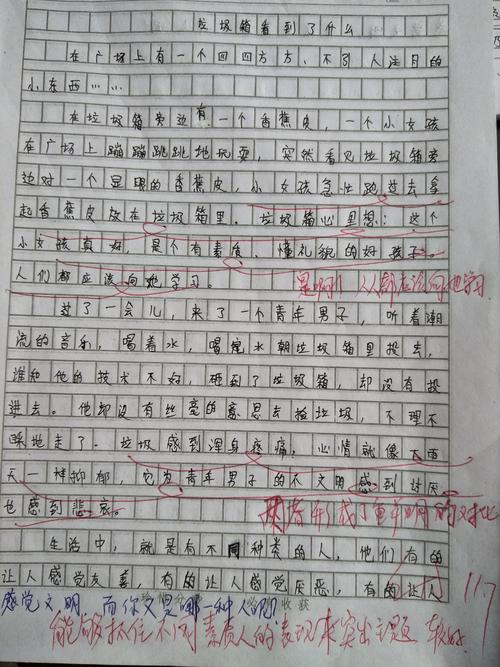 垃圾箱看到了什么
在广场上有一个四四方方、不引人注目的
小东西……
在垃圾箱旁边有一个香蕉皮，一个小女孩
在广场上蹦蹦跳跳地玩耍，突然看见垃圾箱旁
边对一个显眼的香蕉皮，小女孩急忙跑过去拿
起香蕉皮放在垃圾箱里。垃圾箱心里想：这个
小女孩真好，是个有素质、懂礼貌的好孩子。
人们都应该向她学习。
是啊！人人都应该向她学习
过了一会儿，来了一个青年男子，听着潮
流的音乐，喝着水，喝完水朝垃圾箱里投去，
谁知他的技术不好，砸到了垃圾箱，却没有投
进去。他却没有丝毫的意思去捡垃圾，不理不
睬地走了。垃圾感到浑身疼痛，心情就像下雨
天一样抑郁，它为青年男子的不文明感到讨厌
也感到悲哀。
两者形成了鲜明的对比
生活中，就是有不同种类的人，他们有的
让人感觉友善，有的让人感觉厌恶，有的让人
117
感觉文明，而你又是哪一种人呢？
收获
能够抓住不同素质人的表现来突出主题 较好